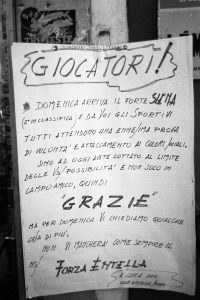 GIOCATORI!
DOMENICA ARRIVA IL FORTE SIENA
(2ª IN CLASSIFICA) E DA VOI GLI SPORTIVI
TUTTI ATTENDONO UNA ENNESIMA PROVA
DI VOLONTÀ E ATTACCAMENTO AI COLORI SOCIALI.
SINO AD OGGI AVETE LOTTATO AL LIMITE
DELLE VS/ POSSIBILITÀ E NON SOLO IN
CAMPO AMICO, QUINDI
"GRAZIE"
MA PER DOMENICA VI CHIEDIAMO QUALCHE
COSA DI PIÙ.
NON VI MANCHERÀ COME SEMPRE IL
NS/ FORZA ENTELLA
A CURA DEL